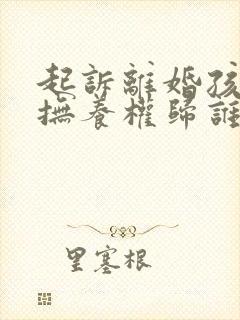 起訴離婚孩
撫養權歸誰
里塞根